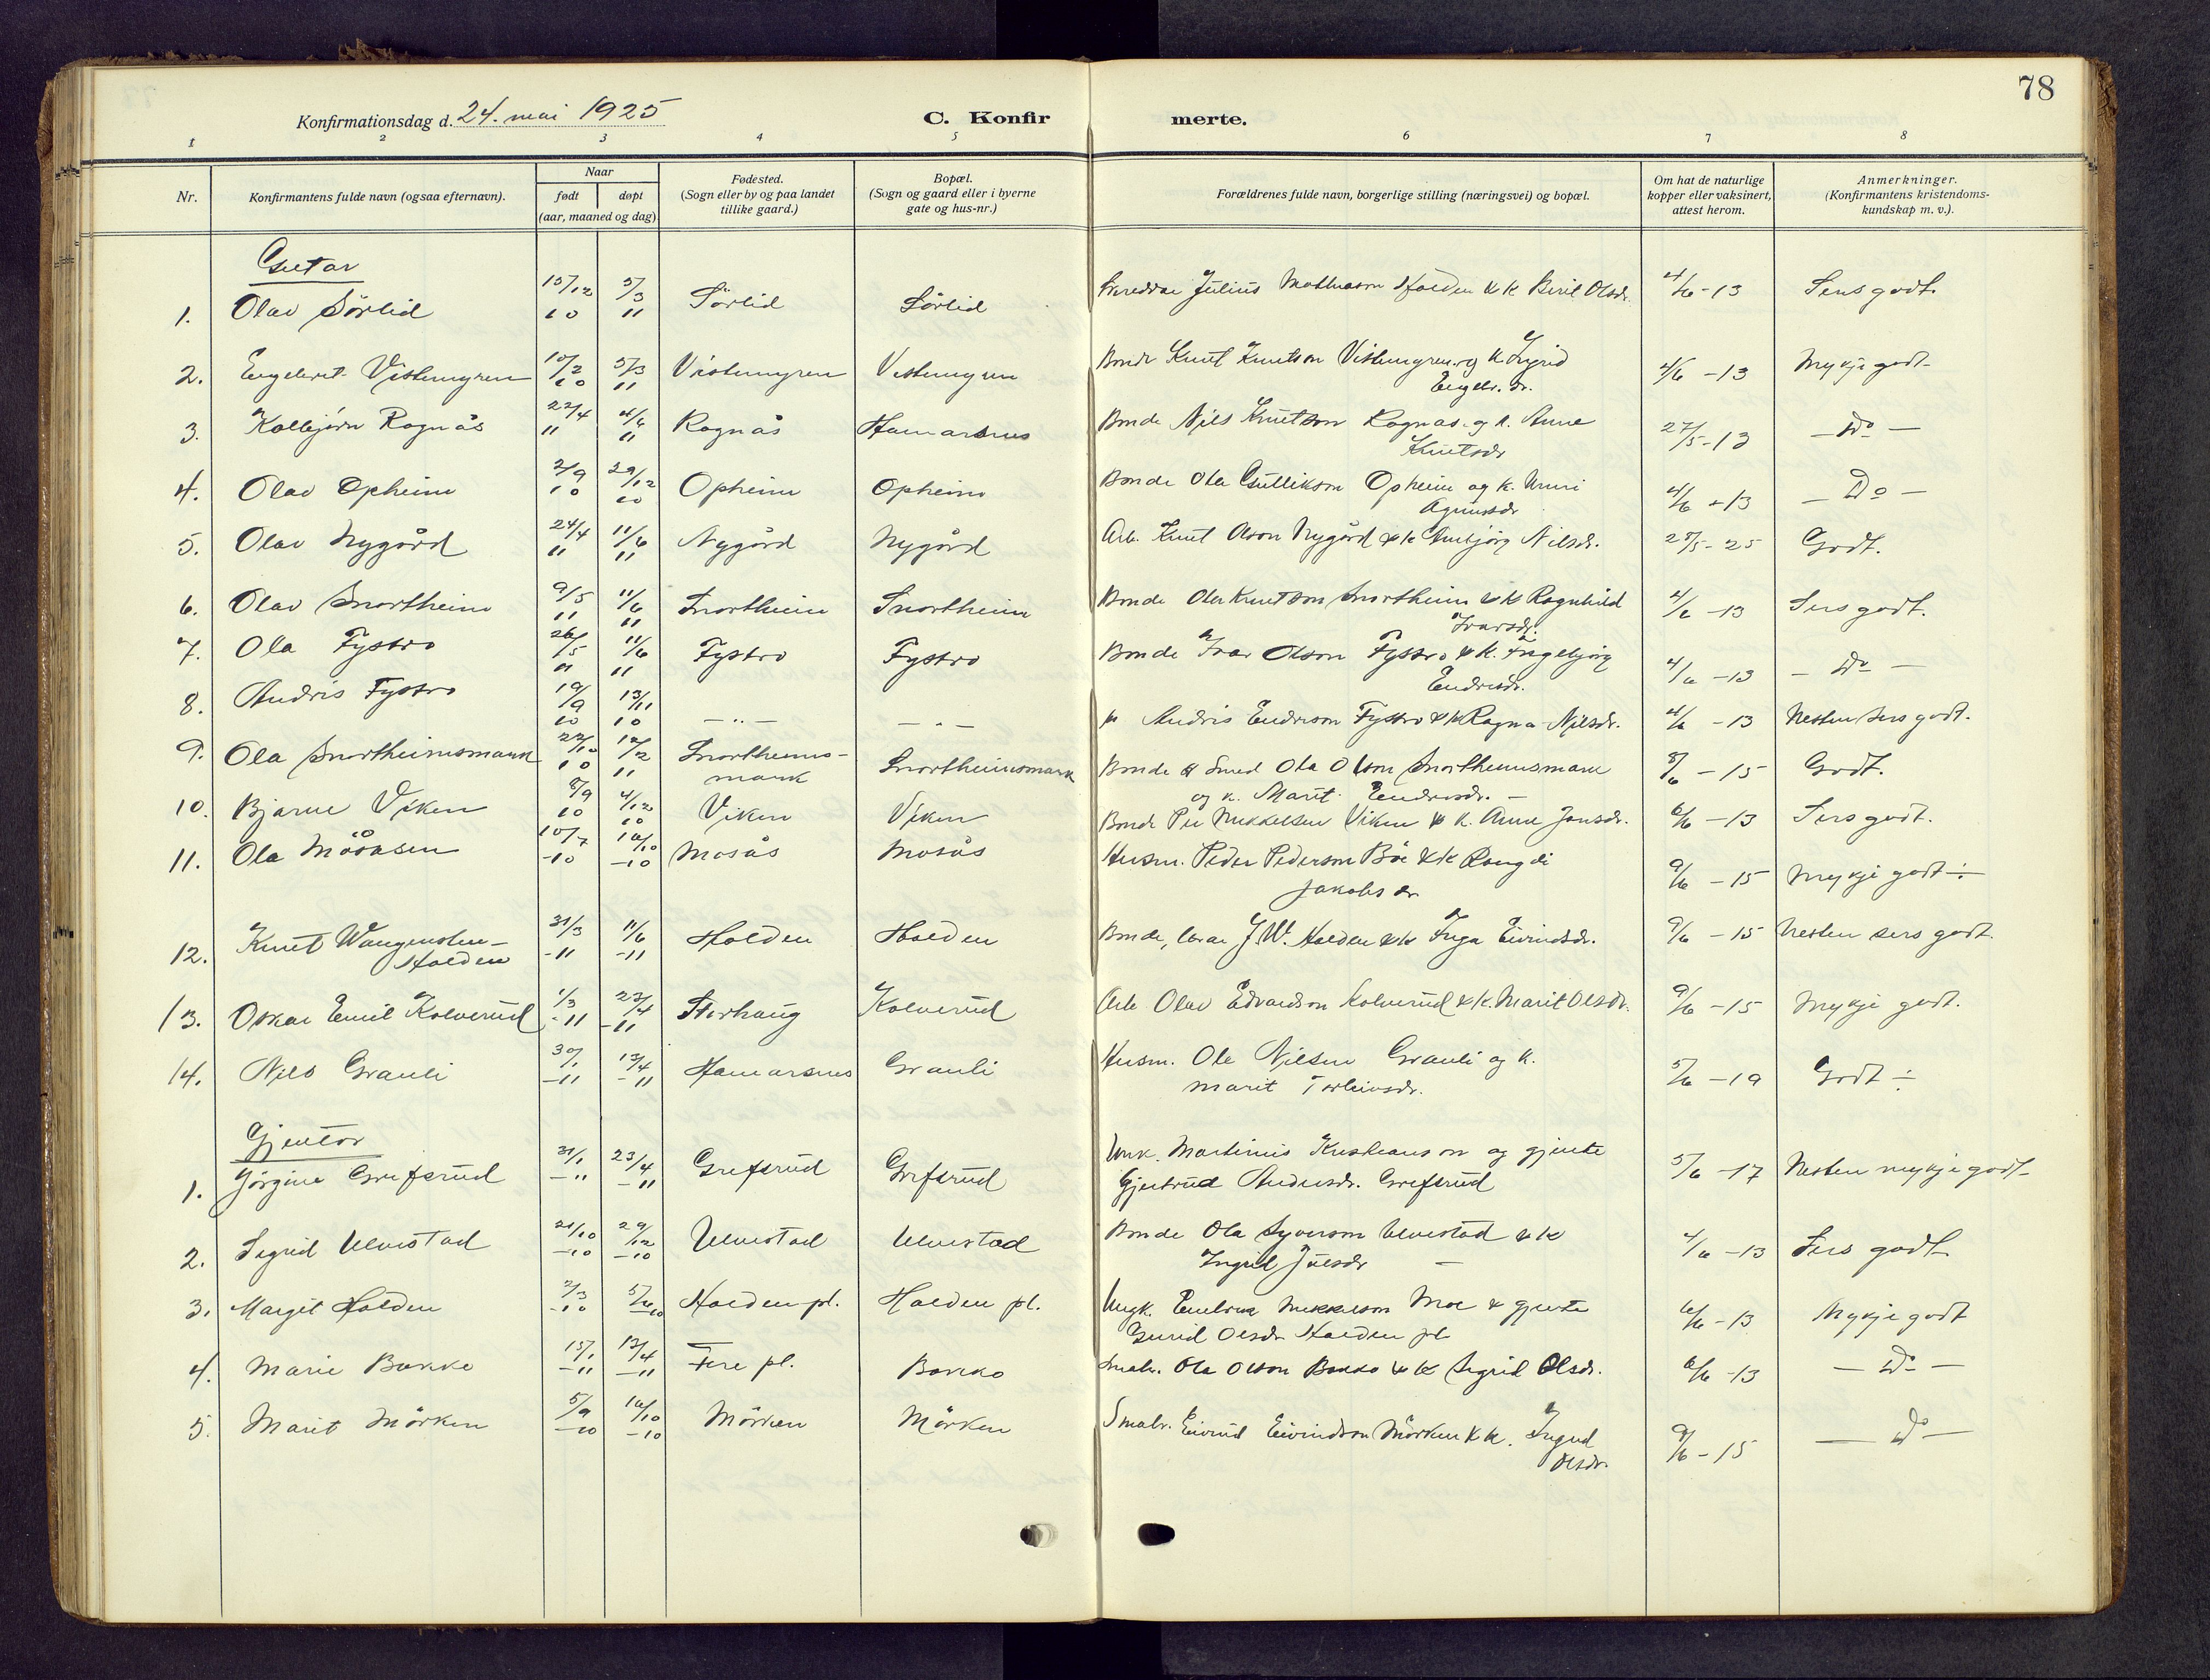 78
Konfirmationsdag d. 24. mai 1925
C. Konfirmerte.
1 2 3 4 5 6 7 8
Nr.
Konfirmantens fulde navn (ogsaa efternavn).
Naar
født døpt
(aar, maaned og dag)
Fødested.
(Sogn eller by og paa landet
tillike gaard.)
Bopæl.
(Sogn og gaard eller i byerne
gate og hus-nr.)
Forældrenes fulde navn, borgerlige stilling (næringsvei) og bopæl.
Om hat de naturlige
kopper eller vaksinert,
attest herom.
Anmerkninger.
(Konfirmantens kristendoms-
kundskap m. v.).
Gutar
1. Olav Sörlid 15/12 10 5/3 11 Sörlid Sörlid Julius Olsdr. 4/6-13 Sers godt.
2. 10/2 5/3 11 Bonde Knut Knutson og k. Ingrid
4/6 -13 Mykje godt
3. Kolbjörn Rognås 22/4 11 4/6 11 Rognås Bonde Nils Knutson Rognås og k. Anne
Knutsdr 27/5-13 - Do -
4. Olav Opheim 2/9 10 29/12 10 Opheim Opheim Bonde Ola Gullikson Opheim og k.
4/6 -13 - Do -
5. Olav Nygård 24/4 11 11/6 11 Nygård Nygård Arb. Knut Olson Nygård & k Nilsdr. 25 Godt.
6. Olav Snortheim 9/5 11 11/6 11 Snortheim Snortheim Bonde Ola Knutson Snortheim & k Ragnhild
Ivarsdr. 4/6 -13 Sers godt.
7. Ola Fystro 26/5 11 11/6 11 Fystro Fystro Bonde Ivar Olson Fystro & k. Ingebjörg
Endresdr. 4/6 -13 - Do -
8. Andris Fystro 19/9 10 13/11 10 - " - - " - Andris Endreson Fystro & k Ragna Nilsdr. 4/6 -13 Nesten sers godt.
9. Ola Snortheimsmark 22/10 10 12/2 11 Snortheims-
mark Snortheimsmark Bonde & Smed Ola Olson Snortheimsmark
og k. Marit Endresdr. - 8/6 - 15 Godt.
10. Bjarne Viken 8/9 10 4/12 10 Viken Viken Bonde Per Mikkelsen Viken & k. Anne Jonsdr. 6/6 - 13 Sers godt.
11. Ola 10/7 -10 16/10 -10 Mosås Mosås Husm. Peder Pederson Böe & k Rangdi
Jakobsdr 9/6 - 15 Mykje godt ÷
12. Knut Wangensten-
Holden 31/3 -11 11/6 -11 Holden Holden Bonde, lærar J.W. Holden & k Inga Eivindsdr. 9/6 - 15 Nesten sers godt.
13. Oskar Emil Kolverud 1/3 -11 23/4 -11 Storhaug Kolverud Arb Olav Edvardson Kolverud & k. Marit Olsdr. 9/6 - 15 Mykje godt.
14. Nils Granli 30/1 -11 13/4 -11 Granli Husm. Ole Nilsen Granli og k.
Marit Torleivsdr. 5/6 -19 Godt ÷
Gjentor
1. Jörgine Grefsrud 31/1 -11 23/4 -11 Grefsrud Grefsrud Martinus Kristianson og gjente
Gjertrud Andersdr. Grefsrud 5/6 -17 Nesten mykje godt
2. Sigrid Ulvestad 21/10 -10 29/12 -10 Ulvestad Ulvestad Bonde Ola Syverson Ulvestad & k
Ingrid Julsdr - 4/6 -13 Sers godt
3. Margit Holden 2/3 -10 -10 Holden pl. Holden pl. Ungk. Mikkelson Moe & gjente
Gurid Olsdr Holden pl 6/6 -13 Mykje godt
4. Marie Bakko 15/1 -11 13/4 -11 pl. Bakko Smabr. Ola Olson Bakko & k Sigrid Olsdr. 6/6 -13 - Do -
5. Marit Mörken 5/9 -10 16/10 -10 Mörken Mörken Smabr. Eivind Eivindson Mörken & k. Ingrid
Olsdr. 9/6 - 15 - Do -